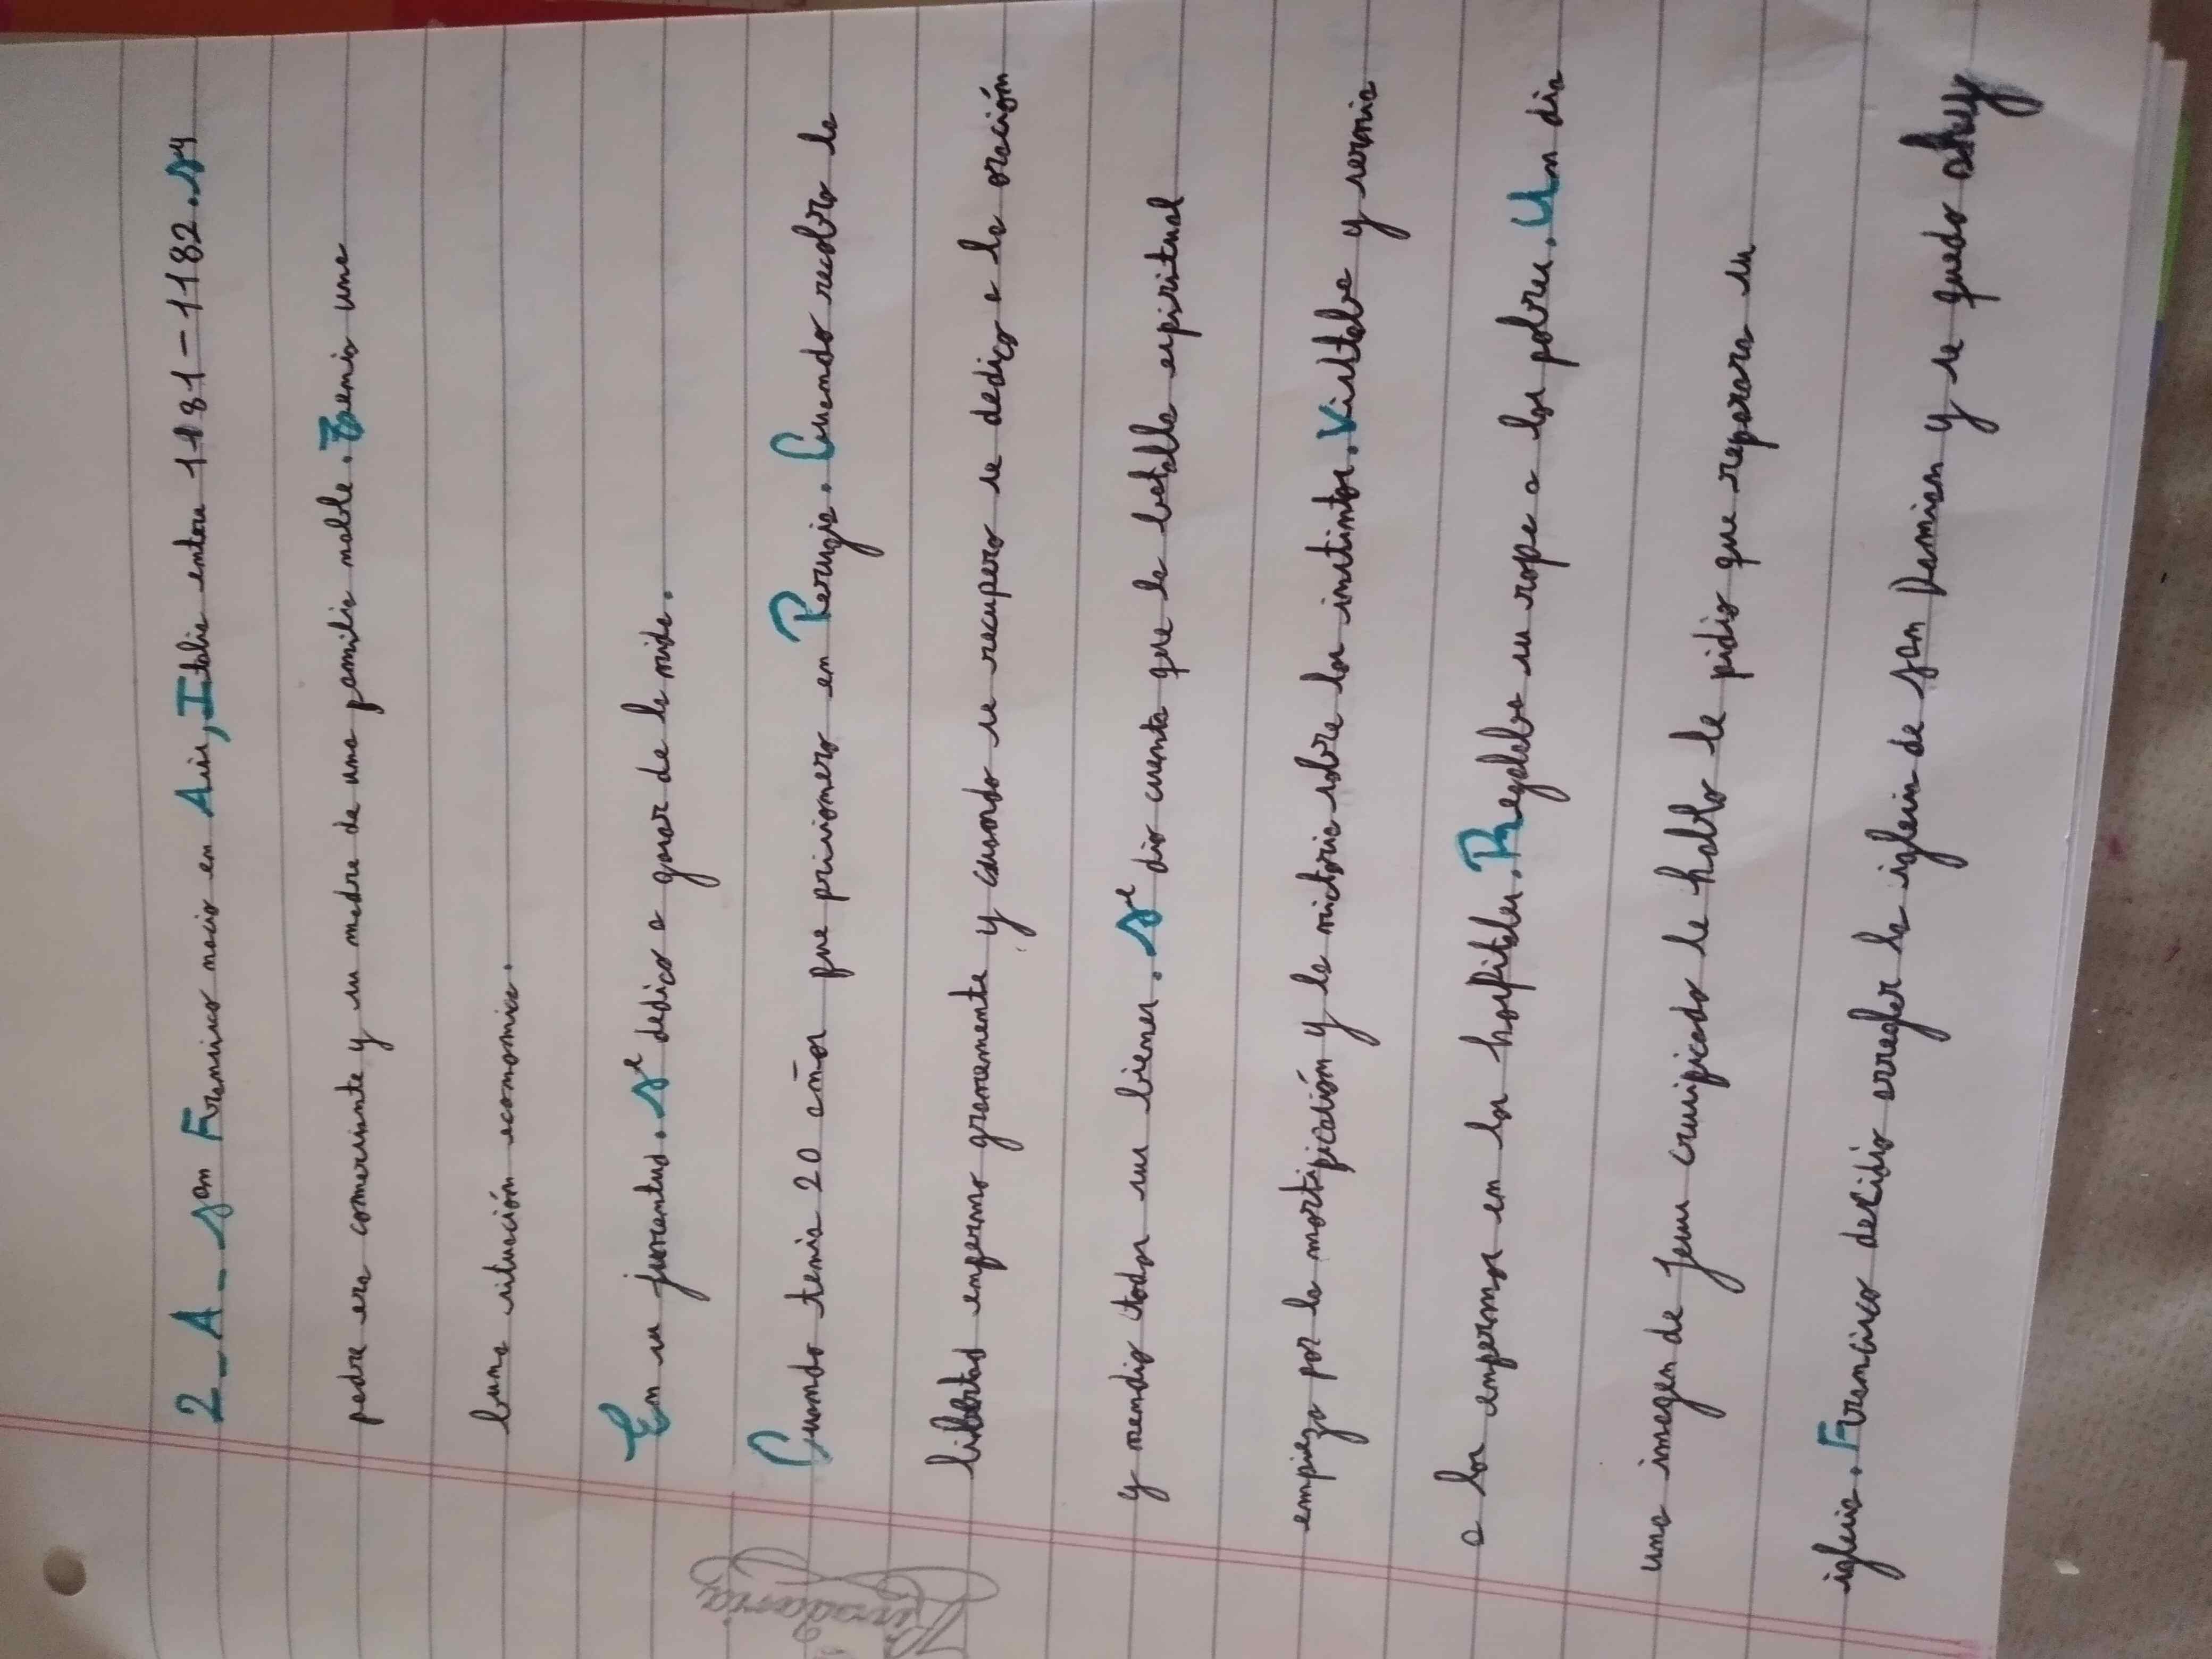 2-A- San Francisco nacio en Asis, Italia entre 1181-1182. Su
padre era comerciante y su madre de una familia noble. Tenia una
buna situación economica.
En su juventud. Se dedico a gozar de la vida.
Cuando tenia 20 años fue prisionero en Perugia. Cuando recobro la
libertad enfermo gravemente y cuando se recupero se dedico a la oración
y vendio todos sus bienes. Se dio cuenta que la batalla espiritual
empieza por la mortificación y la victoria sobre los instintos. Visitaba y servia
a los enfermos en los hospitales. Regalaba su ropa a los pobres. Un dia
una imagen de Jesus crucificado le hablo le pidio que reparara su
iglesia. Francisco decidio arreglar la iglesia de San Damian y se quedo